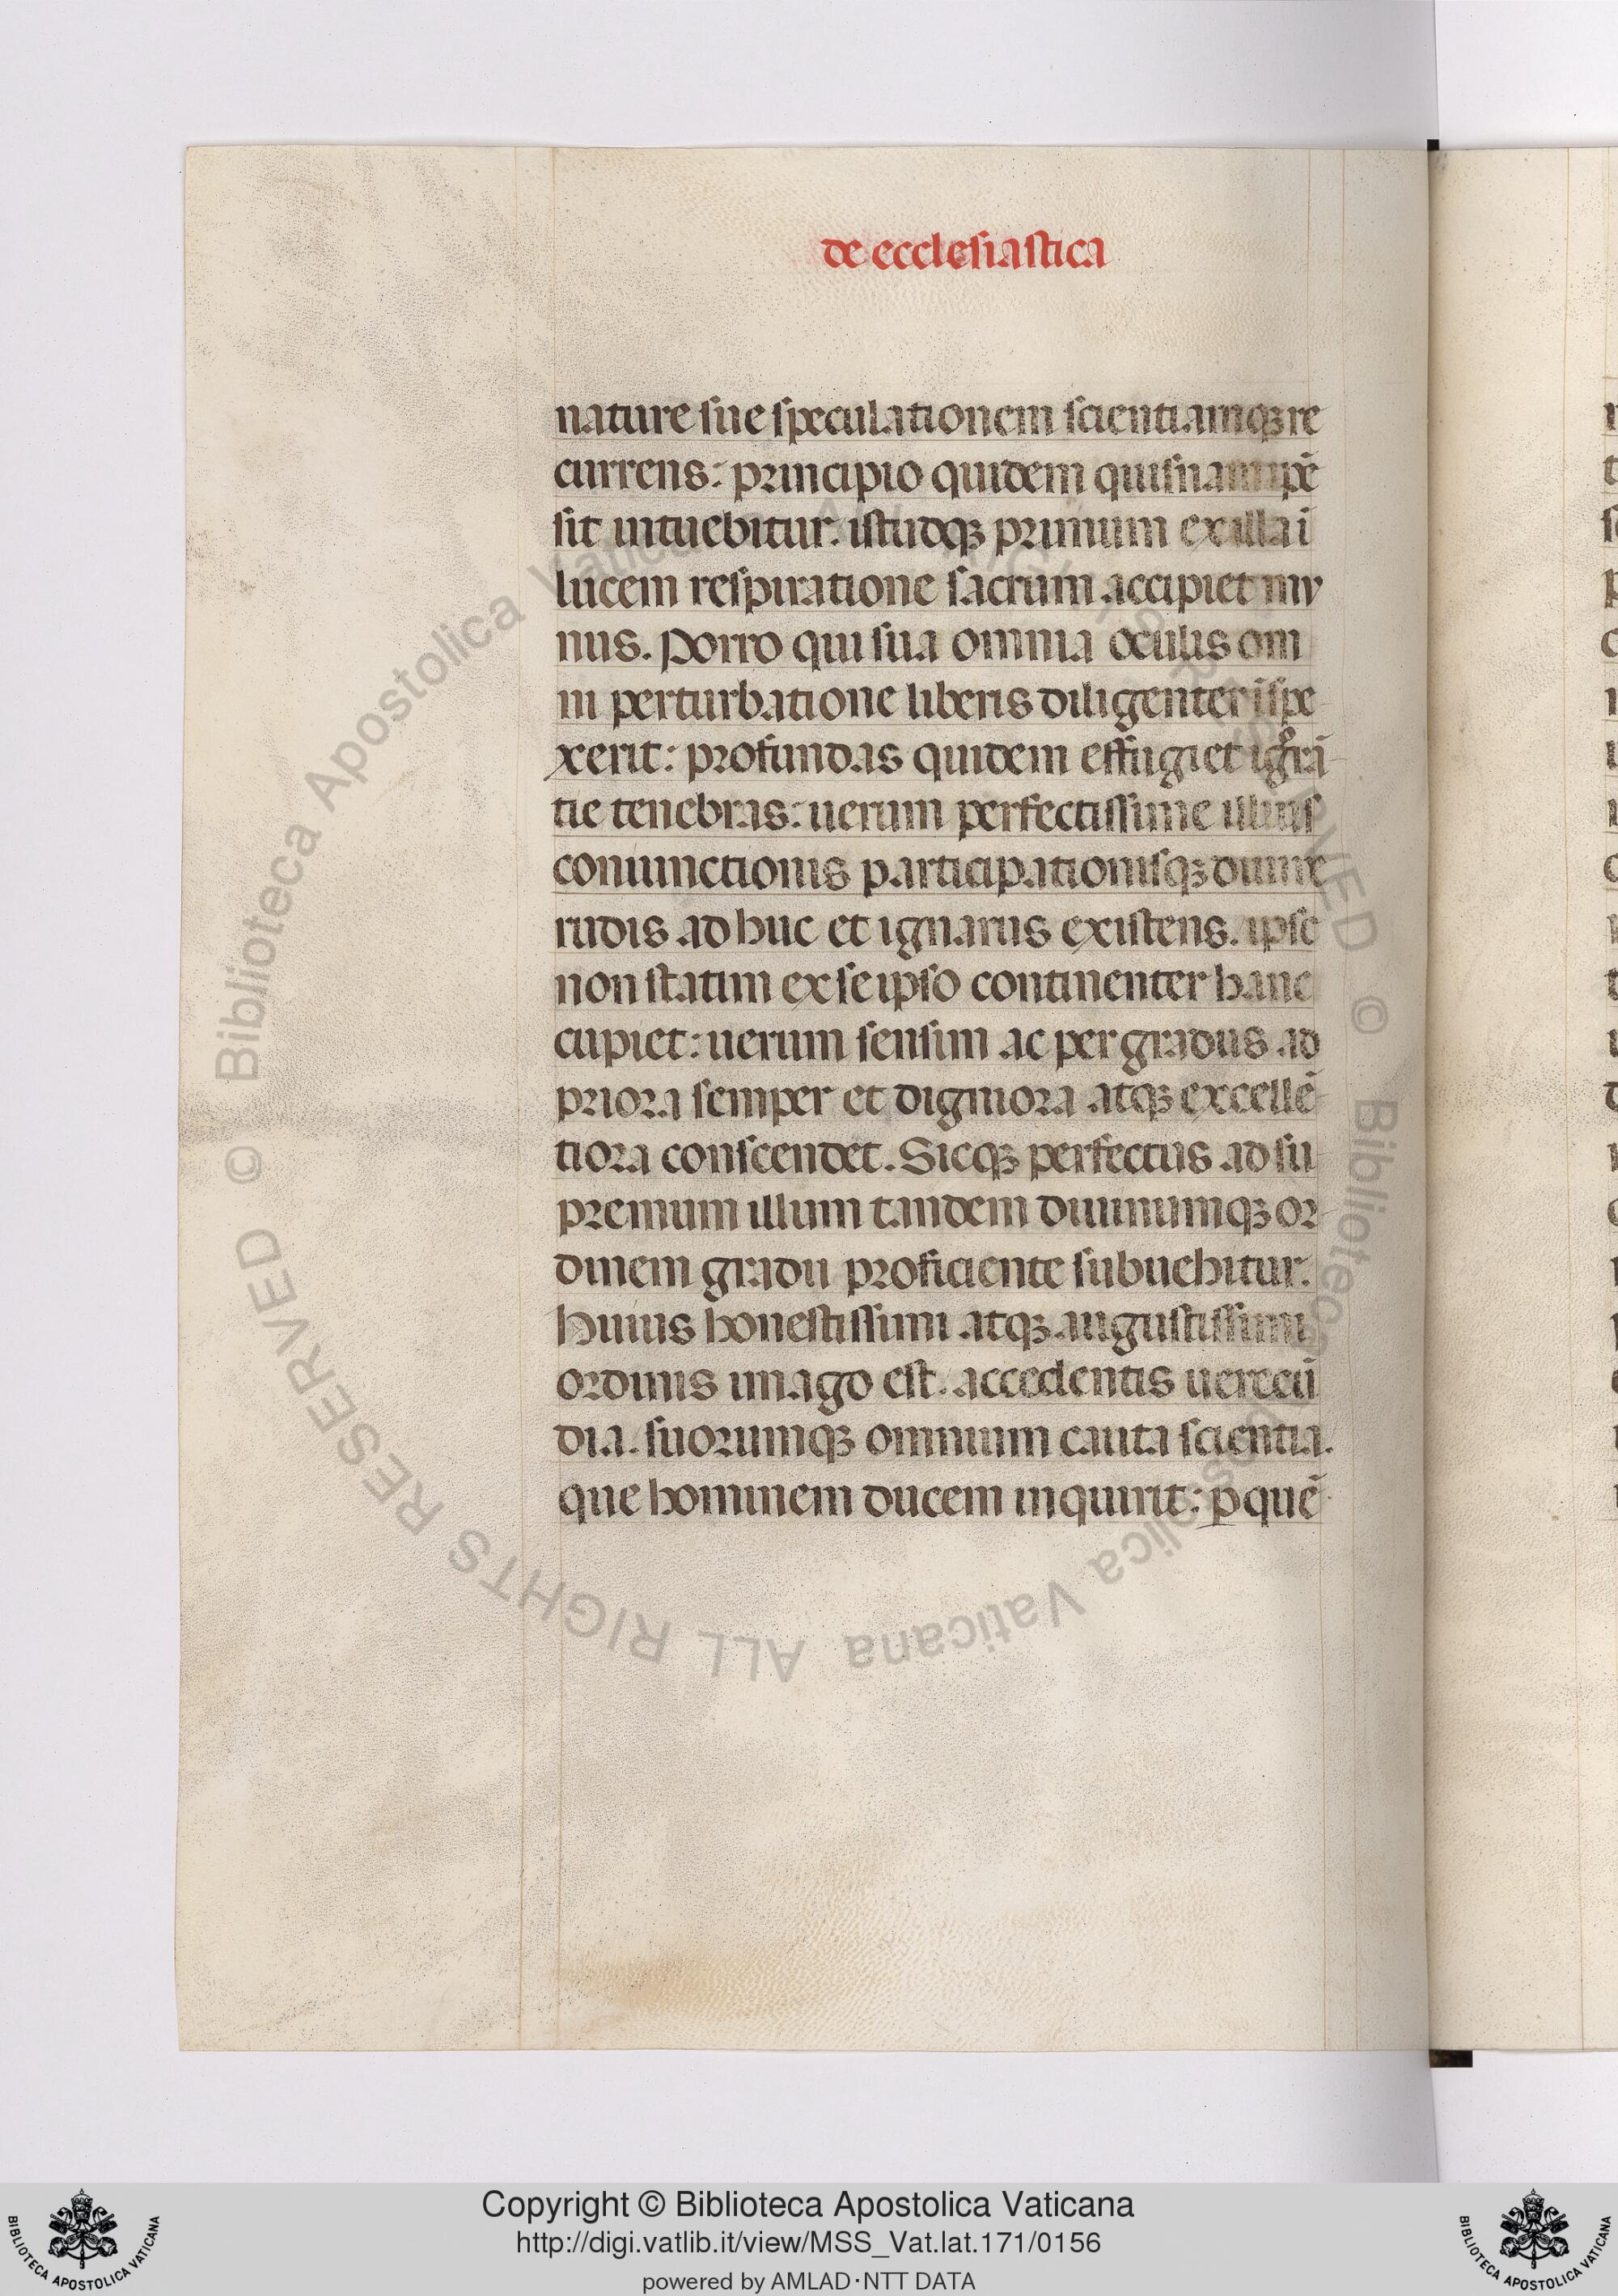 de ecclesiastica
nature sue speculationem scientiamqꝫ re
currens: principio quidem quisnam ip̄e
sit intuebitur. istudqꝫ primum ex illa ī
lucem respiratione sacrum accipiet mu
nus. Porro qui sua omnia oculis om
ni perturbatione liberis diligenter īspe
xerit: profundas quidem effugiet igͦrā
tie tenebras: uerum perfectissime illius
coniunctionis participationisqꝫ diuine
rudis ad huc et ignarus existens. ipse
non statim ex se ipso continenter hanc
cupiet: uerum sensim ac per gradus ad
priora semper et digniora atqꝫ excellē
tiora conscendet. Sicqꝫ perfectus ad su
premum illum tandem diuinumqꝫ or
dinem gradu proficiente subuehitur.
Huius honestissimi atqꝫ augustissimi
ordinis imago est. accedentis uerecū
dia. suorumqꝫ omnium cauta scientia.
que hominem ducem inquirit: ꝑ quē
© Biblioteca Apostolica Vaticana ALL RIGHTS RESERVED © Biblioteca Apostolica Vaticana ALL RIGHTS RESERVED
Copyright © Biblioteca Apostolica Vaticana
http://digi.vatlib.it/view/MSS_Vat.lat.171/0156
powered by AMLAD·NTT DATA
BIBLIOTECA APOSTOLICA VATICANA
BIBLIOTECA APOSTOLICA VATICANA